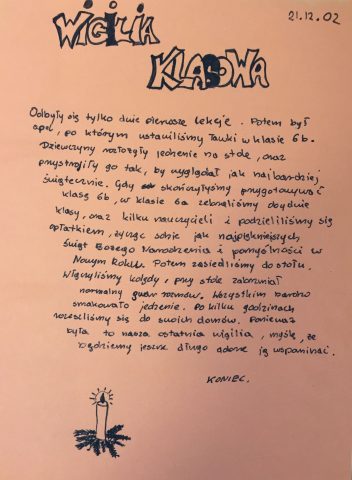 21.12.02
WIGILIA
KLASOWA
Odbyły się tylko dwie pierwsze lekcje. Potem był
apel, po którym ustawiliśmy ławki w klasie 6b.
Dziewczyny rozłożyły jedzenie na stole, oraz
przystroiły go tak, by wyglądał jak najbardziej
świątecznie. Gdy skończyłyśmy przygotowywać
klasę 6b, w klasie 6a zebraliśmy obydwie
klasy, oraz kilku nauczycieli i podzieliliśmy się
opłatkiem, życząc sobie jak najpiękniejszych
świąt Bożego Narodzenia i pomyślności w
Nowym Roku. Potem zasiedliśmy do stołu.
Włączyliśmy kolędy, przy stole zabrzmiał
normalny gwar rozmów. Wszystkim bardzo
smakowało jedzenie. Po kilku godzinach
rozeszliśmy się do swoich domów. Ponieważ
była to nasza ostatnia wigilia, myślę, że
będziemy jeszcze długo ją wspominać.
KONIEC.